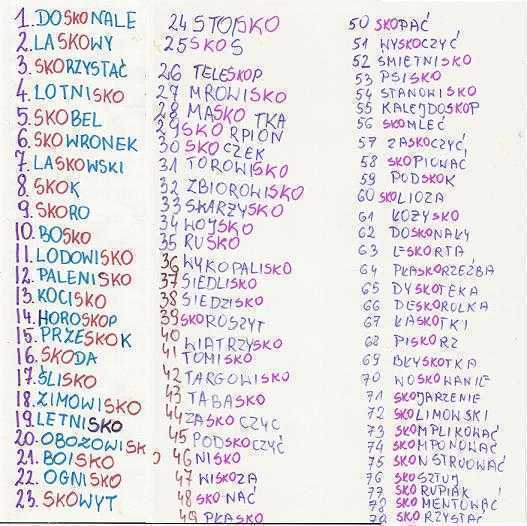 1. DOSKONALE
2. LASKOWY
3. SKORZYSTAĆ
4. LOTNISKO
5. SKOBEL
6. SKOWRONEK
7. LASKOWSKI
8. SKOK
9. SKORO
10. BOSKO
11. LODOWISKO
12. PALENISKO
13. KOCISKO
14. HOROSKOP
15. PRZESKOK
16. SKODA
17. ŚLISKO
18. ZIMOWISKO
19. LETNISKO
20. OBOZOWISK
21. BOISKO
22. OGNISKO
23. SKOWYT
24 STOPSKO
25 SKOS
26 TELESKOP
27 MROWISKO
28 MASKOTKA
29 SKORPION
30 SKOCZEK
31 TOROWISKO
32 ZBIOROWISKO
33 SKARZYSKO
34 WOJSKO
35 RUSKO
36 WYKOPALISKO
37 SIEDLISKO
38 SIEDZISKO
39 SKOROSZYT
40 WIATRZYSKO
41 TOMISKO
42 TARGOWISKO
43 TABASKO
44 ZASKOCZYĆ
45 PODSKOCZYĆ
46 NISKO
47 WISKOZA
48 SKONAĆ
49 PŁASKO
50 SKOPAĆ
51 WYSKOCZYĆ
52 ŚMIETNISKO
53 PSISKO
54 STANOWISKO
55 KALEJDOSKOP
56 SKOMLEĆ
57 ZASKOCZYĆ
58 SKOPIOWAĆ
59 PODSKOK
60 SKOLIOZA
61 ŁOŻYSKO
62 DOSKONAŁY
63 ESKORTA
64 PŁASKORZEŹBA
65 DYSKOTEKA
66 DESKOROLKA
67 ŁASKOTKI
68 PISKORZ
69 BŁYSKOTKA
70 WOSKOWANIE
71 SKOJARZENIE
72 SKOLIMOWSKI
73 SKOMPLIKOWAĆ
74 SKOMPONOWAĆ
75 SKONSTRUOWAĆ
76 SKOSZTUJ
77 SKORUPIAK
78 SKOMENTOWAĆ
79 SKORZYSTAĆ